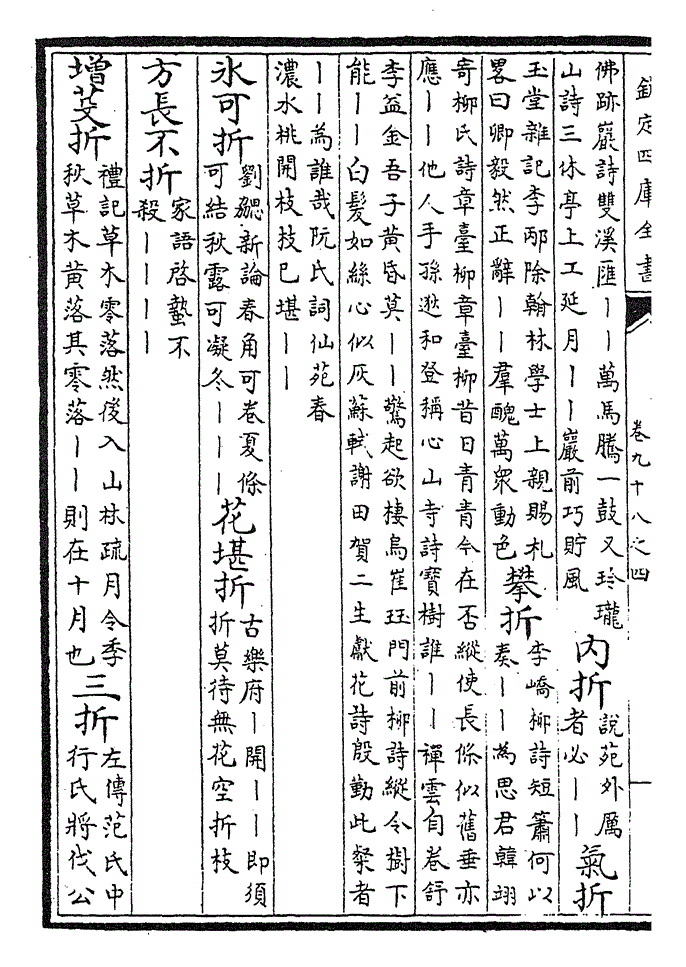 欽定四庫全書
卷九十八之四
佛跡巖詩雙溪匯丨丨萬馬騰一鼓又玲瓏
山詩三休亭上工延月丨丨巖前巧貯風
内折
說苑外厲
者必丨丨
氣折
玉堂雜記李邴除翰林學士上親賜札
畧曰卿毅然正辭丨丨羣醜萬衆動色
攀折
李嶠柳詩短簫何以
奏丨丨為思君韓翊
寄柳氏詩章臺柳章臺柳昔日青青今在否縱使長條似舊垂亦
應丨丨他人手孫逖和登稱心山寺詩寶樹誰丨丨禪雲自卷舒
李益金吾子黄昏莫丨丨驚起欲棲烏崔珏門前柳詩縱令樹下
能丨丨白髮如絲心似灰蘇軾謝田賀二生獻花詩殷勤此粲者
丨丨為誰哉阮氏詞仙苑春
濃水桃開枝枝已堪丨丨
氷可折
劉勰新論春角可卷夏條
可結秋露可凝冬丨丨丨
花堪折
古樂府丨開丨丨即須
折莫待無花空折枝
方長不折
家語啓蟄不
殺丨丨丨丨
增芟折
禮記草木零落然後入山林疏月令季
秋草木黄落其零落丨丨則在十月也
三折
左傳范氏中
行氏將伐公